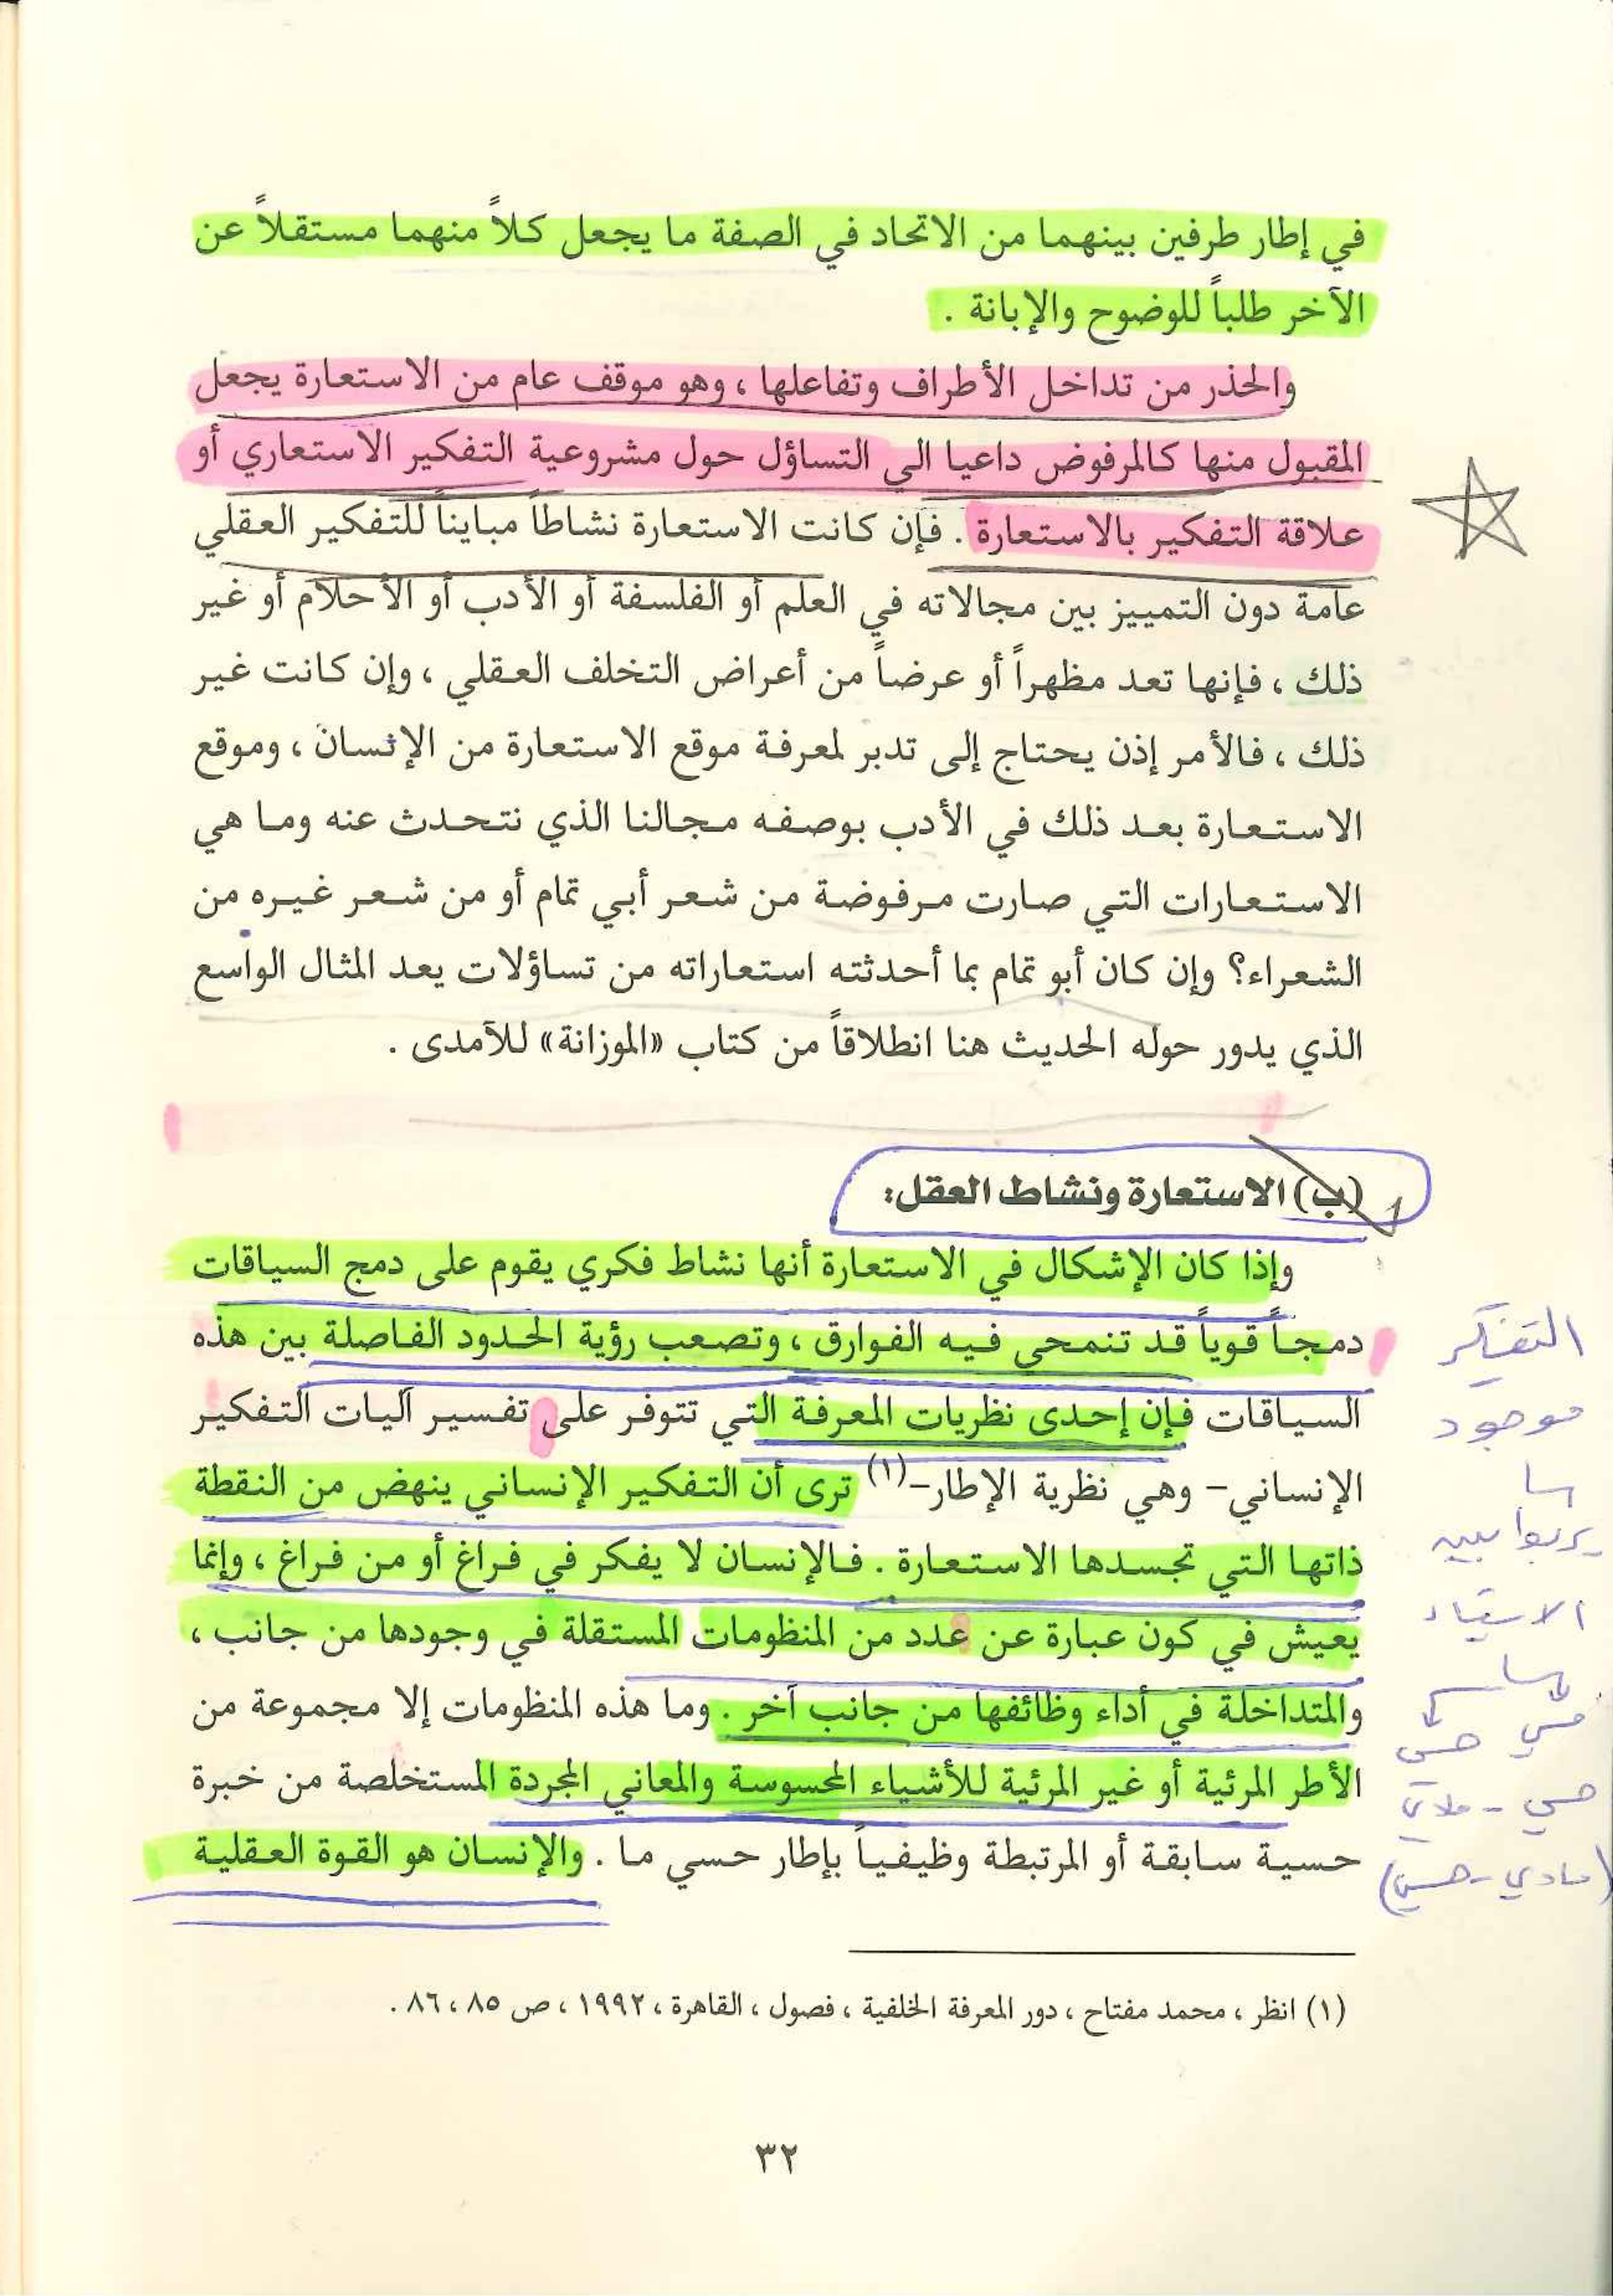 في إطار طرفين بينهما من الاتحاد في الصفة ما يجعل كلاً منهما مستقلاً عن
الآخر طلباً للوضوح والإبانة .
والحذر من تداخل الأطراف وتفاعلها ، وهو موقف عام من الاستعارة يجعل
المقبول منها كالمرفوض داعيا الي التساؤل حول مشروعية التفكير الاستعاري أو
علاقة التفكير بالاستعارة . فإن كانت الاستعارة نشاطاً مبايناً للتفكير العقلي
عامة دون التمييز بين مجالاته في العلم أو الفلسفة أو الأدب أو الأحلام أو غير
ذلك ، فإنها تعد مظهراً أو عرضاً من أعراض التخلف العقلي ، وإن كانت غير
ذلك ، فالأمر إذن يحتاج إلى تدبر لمعرفة موقع الاستعارة من الإنسان ، وموقع
الاستعارة بعد ذلك في الأدب بوصفه مجالنا الذي نتحدث عنه وما هي
الاستعارات التي صارت مرفوضة من شعر أبي تمام أو من شعر غيره من
الشعراء؟ وإن كان أبو تمام بما أحدثته استعاراته من تساؤلات يعد المثال الواسع
الذي يدور حوله الحديث هنا انطلاقاً من كتاب «الموزانة» للآمدى .
(ب) الاستعارة ونشاط العقل:
وإذا كان الإشكال في الاستعارة أنها نشاط فكري يقوم على دمج السياقات
دمجاً قوياً قد تنمحي فيه الفوارق ، وتصعب رؤية الحدود الفاصلة بين هذه
السياقات فإن إحدى نظريات المعرفة التي تتوفر على تفسير آليات التفكير
الإنساني- وهي نظرية الإطار-(١) ترى أن التفكير الإنساني ينهض من النقطة
ذاتها التي تجسدها الاستعارة . فالإنسان لا يفكر في فراغ أو من فراغ ، وإنما
يعيش في كون عبارة عن عدد من المنظومات المستقلة في وجودها من جانب ،
والمتداخلة في أداء وظائفها من جانب آخر . وما هذه المنظومات إلا مجموعة من
الأطر المرئية أو غير المرئية للأشياء المحسوسة والمعاني المجردة المستخلصة من خبرة
حسية سابقة أو المرتبطة وظيفياً بإطار حسي ما . والإنسان هو القوة العقلية
التفكير
موجود
الاشياء
(مادي - حسي)
(١) انظر ، محمد مفتاح ، دور المعرفة الخلفية ، فصول ، القاهرة ، ١٩٩٢ ، ص ٨٥ ، ٨٦ .
٣٢